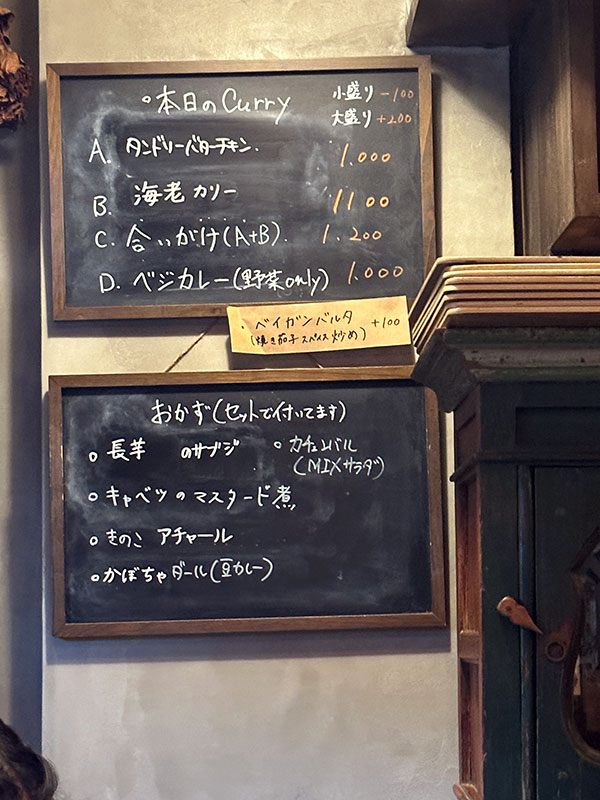 ○本日のCurry
小盛り -100
大盛り +200
A. タンドリーバターチキン. 1.000
B. 海老カリー 1100
C. 合いがけ(A+B). 1.200
D. ベジカレー(野菜only) 1.000
・ベイガンバルタ +100
(焼き茄子スパイス炒め)
おかず(セットで付いてます)
○長芋 のサブジ
○カチュンバル
(MIXサラダ)
○キャベツのマスタード煮
○きのこ アチャール
○かぼちゃダール(豆カレー)